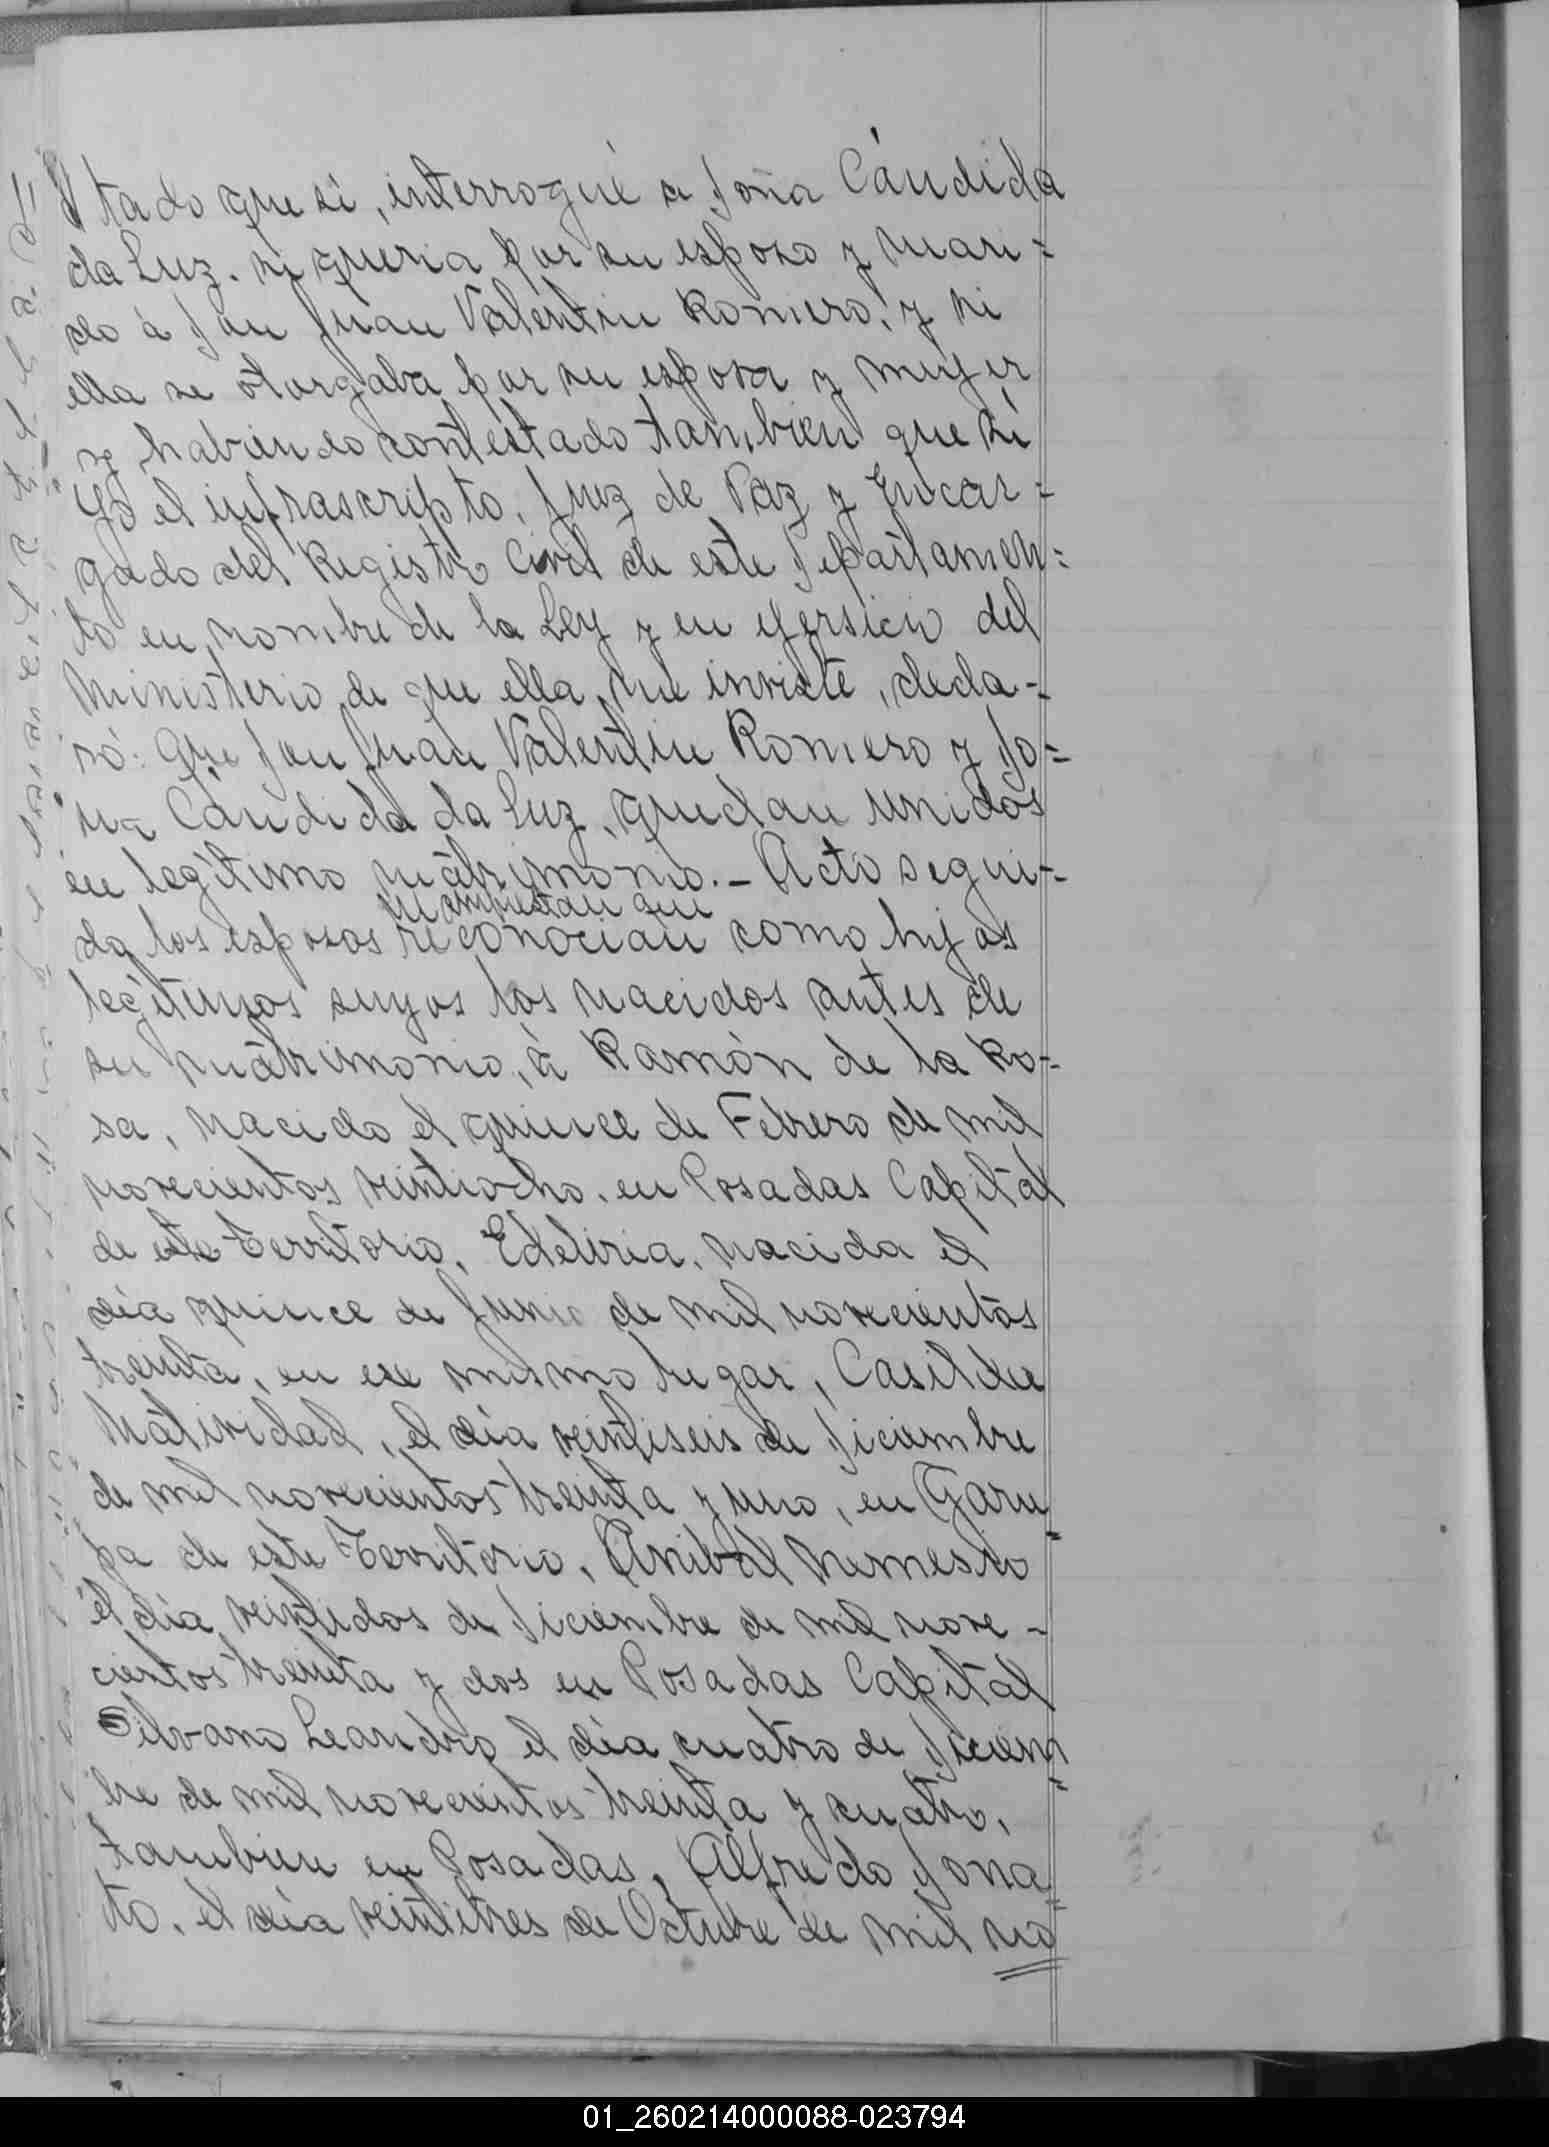 tado que si, interrogué a Doña Cándida
da Luz. si queria por su esposo y mari=
do á Don Juan Valentin Romero, y si
ella se otorgaba por su esposa y mujer
y habiendo contestado tambien que si
Yo el infrascripto, Juez de Paz y Encar=
gado del Registro Civil de este Departamen=
to en nombre de la Ley y en ejersicio del
Ministerio de que ella me inviste, decla-
ró: Que Don Juan Valentin Romero y Do=
ña Cándida da Luz, quedan unidos
en legítimo matrimonio.- Acto segui-
manifestan que
do los esposos reconocian como hijos
legítimos suyos los nacidos antes de
su matrimonio, á Ramón de la Ro-
sa, nacido el quince de Febrero de mil
novecientos veintiocho. en Posadas Capital
de este Territorio, Edeliria, nacida el
día quince de Junio de mil novecientos
treinta, en ese mismo lugar, Casilda
Natividad, el día veintiseis de Diciembre
de mil novecientos treinta y uno, en Garu=
pa de este Territorio, Anibal Nemesio
el día veintidos de Diciembre de mil nove-
cientos treinta y dos en Posadas Capital
Silvano Leandro el día cuatro de Diciem=
bre de mil novecientos treinta y cuatro,
tambien en Posadas, Alfredo Dona=
to, el día veintitres de Octubre de mil no
01_260214000088-023794